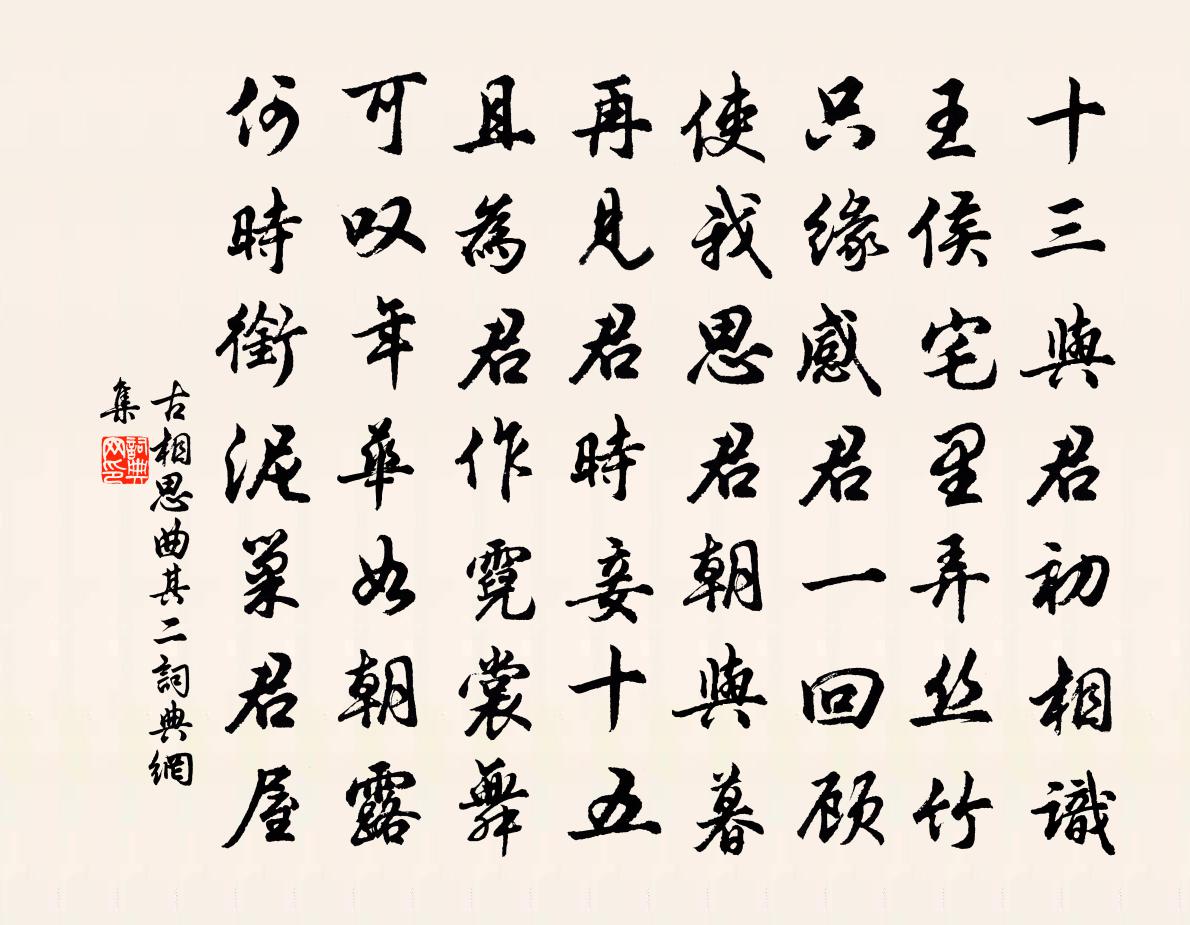 十三與君初相識
王侯宅里弄丝竹
只缘感君一回顾
使我思君朝與暮
再見君時妾十五
且為君作霓裳舞
可叹年華如朝露
何時銜泥巢君屋
古相思曲其二詞典網
集
詞典
网印